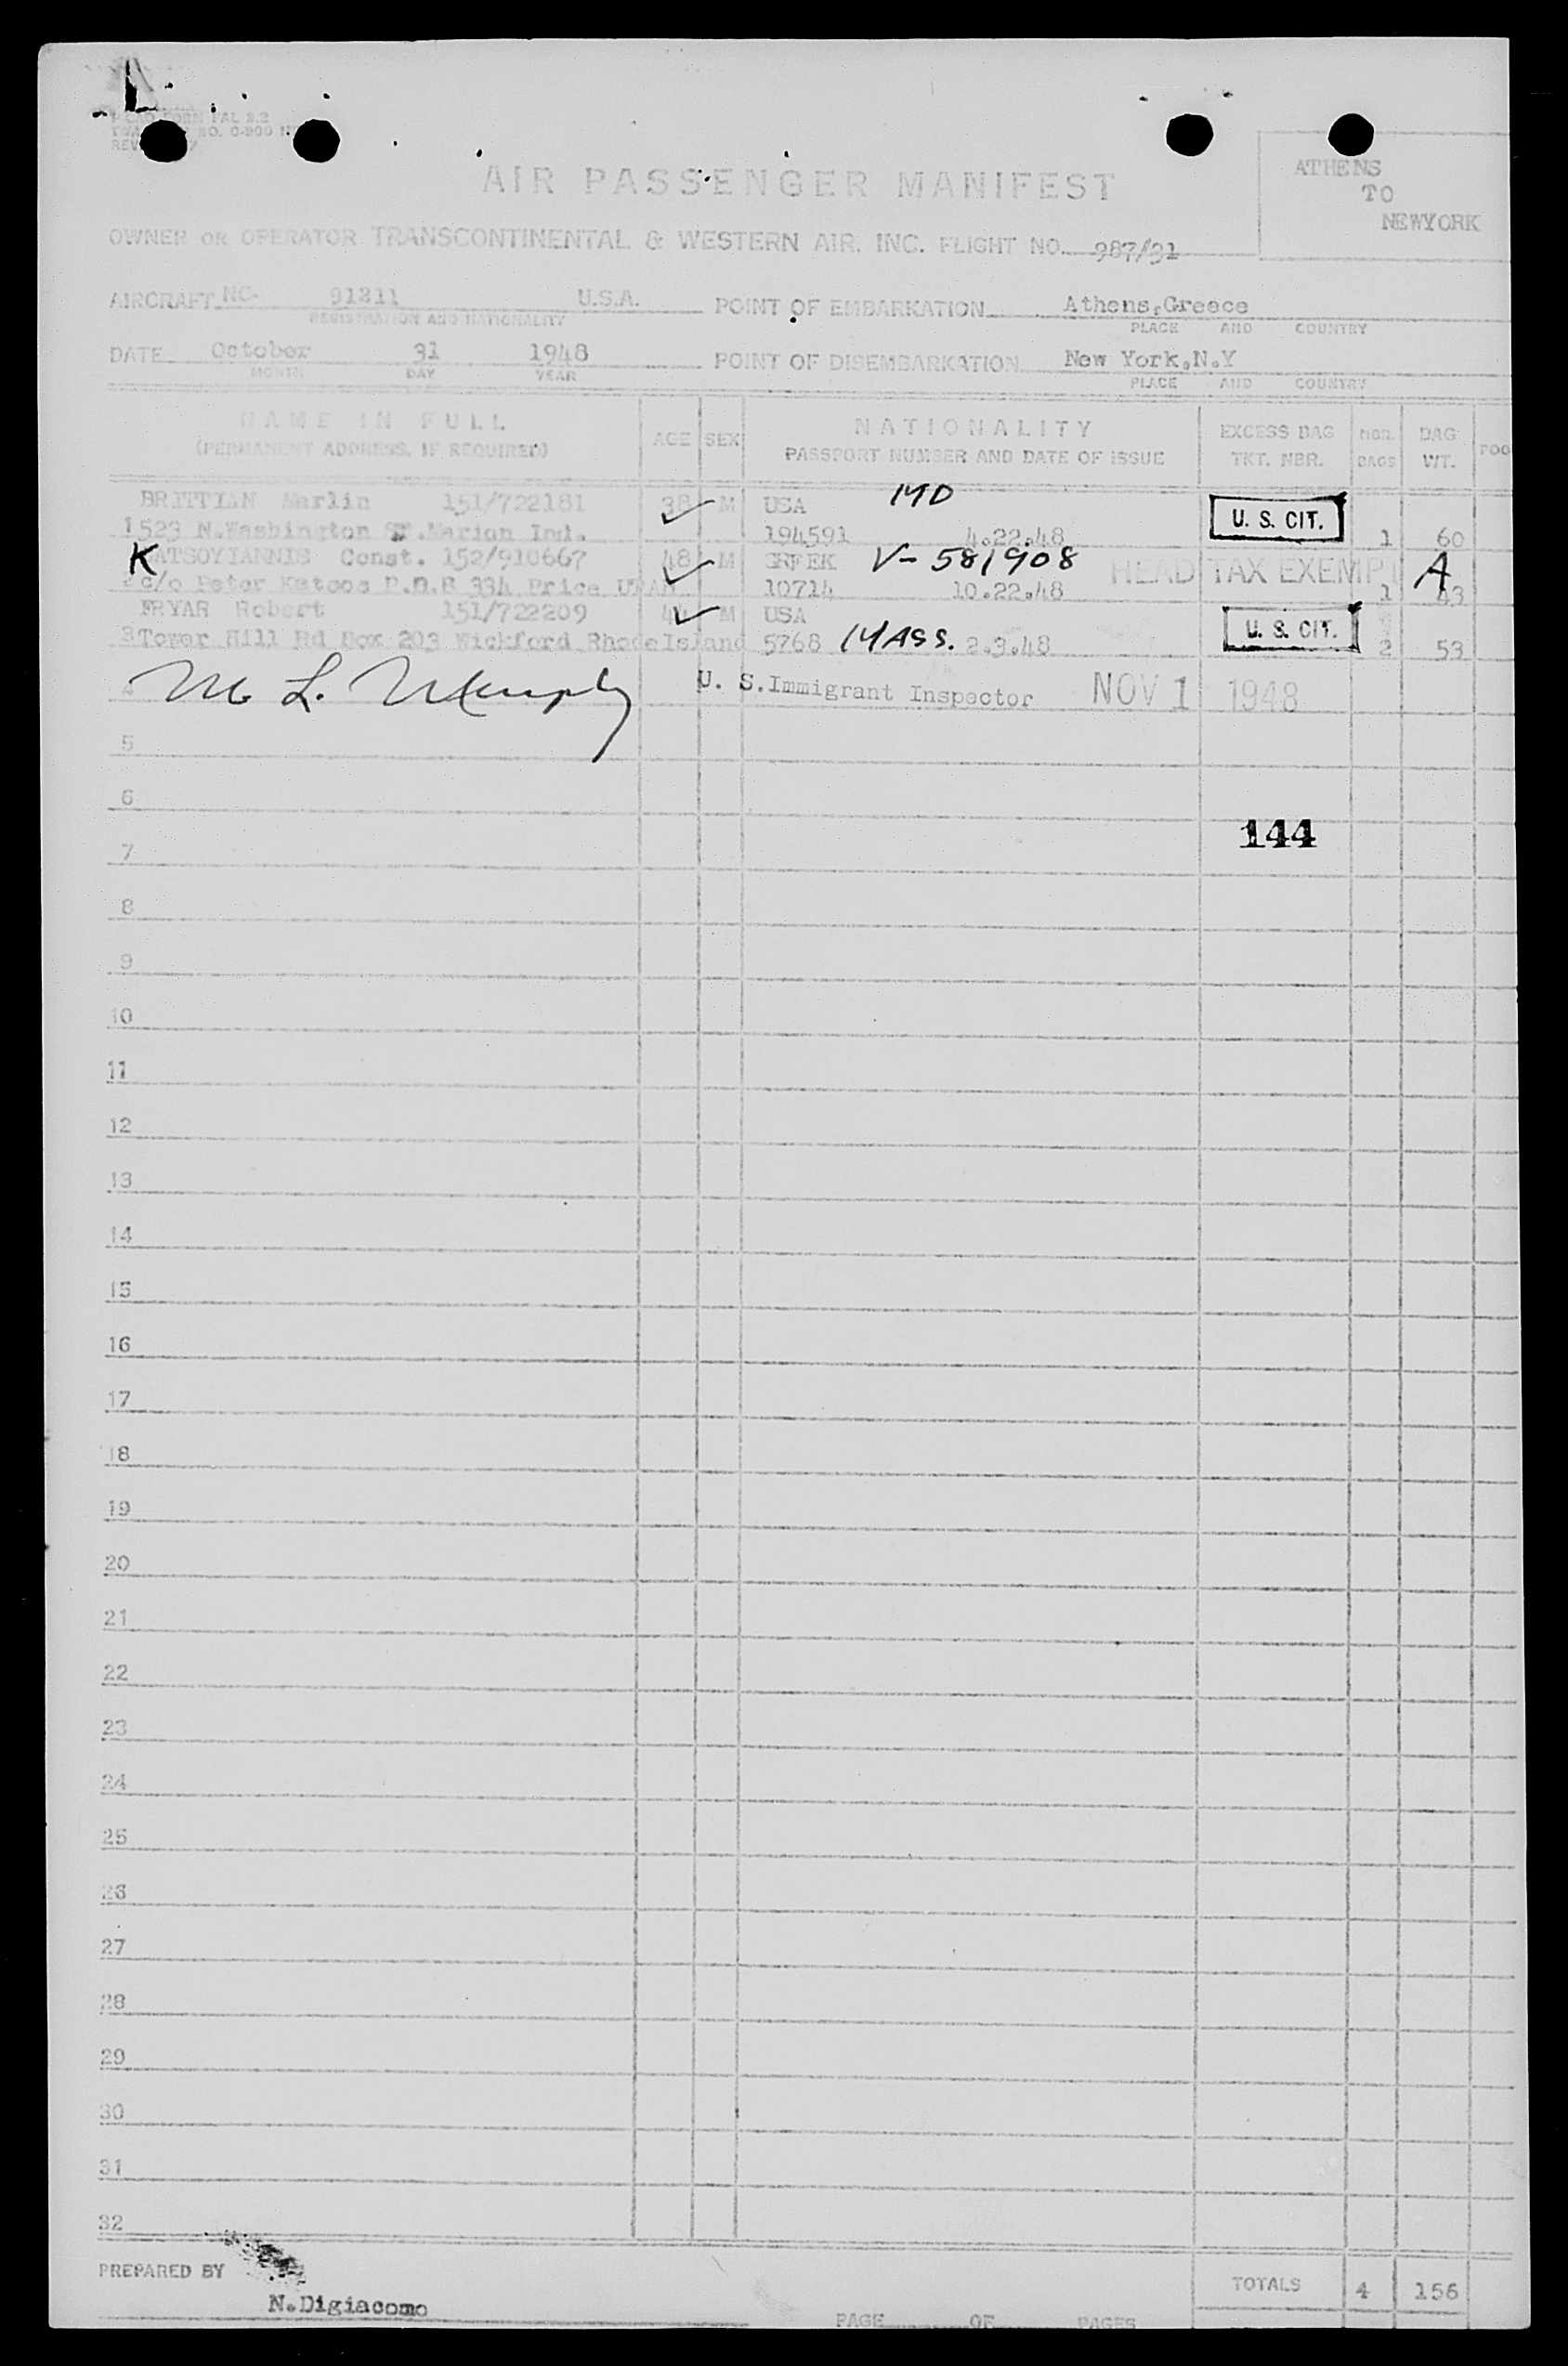 ATHENS
TO
NEWYORK
AIR PASSENGER MANIFEST
OWNER OR OPERATOR TRANSCONTINENTAL & WESTERN AIR, INC. FLIGHT NO. 987/31
AIRCRAFT NC. 91211 U.S.A. POINT OF EMBARKATION Athens,Greece
REGISTRATION AND NATIONALITY PLACE AND COUNTRY
DATE October 31 1948 POINT OF DISEMBARKATION New York,N.Y
MONTH DAY YEAR PLACE AND COUNTRY
NAME IN FULL AGE SEX NATIONALITY EXCESS BAG NBR. BAG
(PERMANENT ADDRESS, IF REQUIRED) PASSPORT NUMBER AND DATE OF ISSUE TKT. NBR. BAGS WT.
BRITTIAN Marlin 151/722181 38 M USA MD U. S. CIT.
1 523 N.Washington ST.Marion Ind. 194591 4.22.48 1 60
KATSOYIANNIS Const. 152/910667 48 M GREEK V-581908 HEAD TAX EXEMPT A
2 c/o Peter Katsos P.O.B 334 Price UTAH 10714 10.22.48 1 43
FRYAR Robert 151/722209 44 M USA U. S. CIT.
3 Tower Hill Rd Box 203 Wickford RhodeIsland 5768 MASS. 2.3.48 2 53
4 M L. Murphy U. S. Immigrant Inspector NOV 1 1948
5
6
144
7
8
9
10
11
12
13
14
15
16
17
18
19
20
21
22
23
24
25
26
27
28
29
30
31
32
PREPARED BY TOTALS 4 156
N.Digiacomo
PAGE OF PAGES